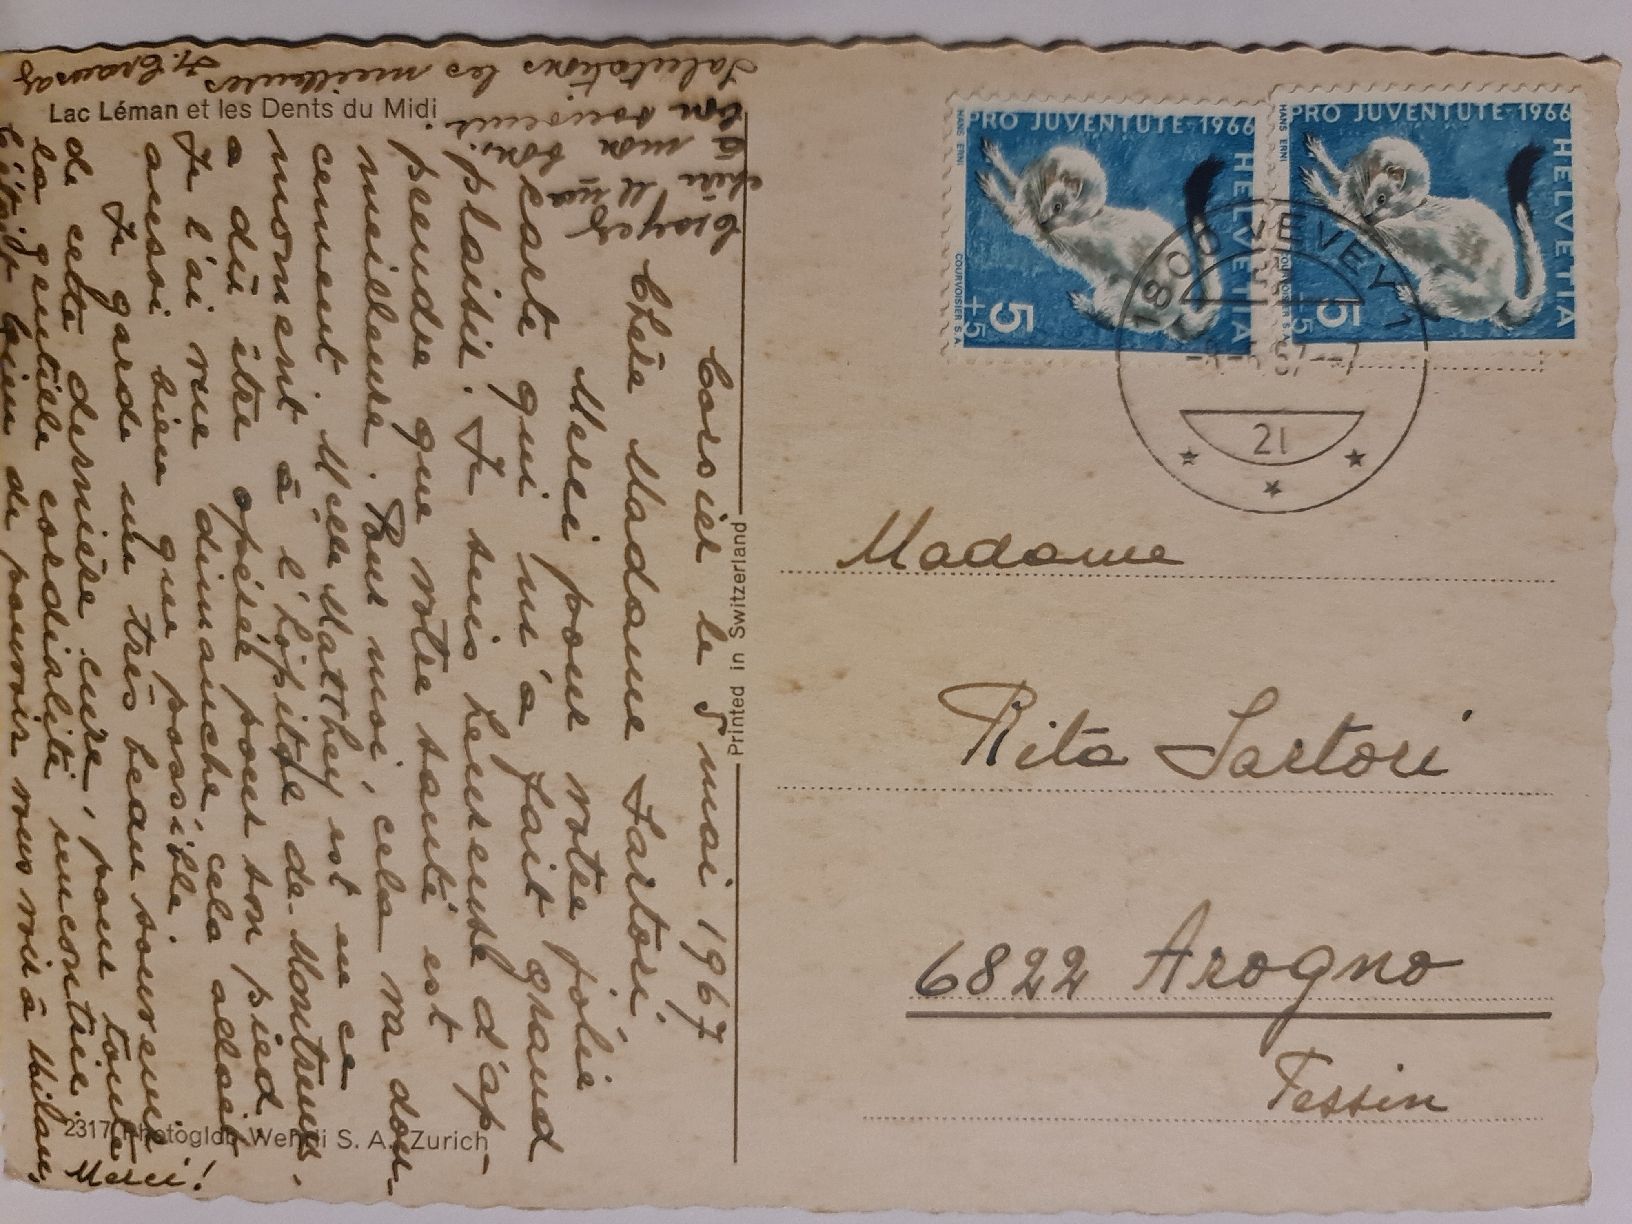 Lac Léman et les Dents du Midi
Corsier le 5 mai 1967
Chère Madame Sartori,
Merci pour votre jolie
carte qui m'a fait grand
plaisir. Je suis heureuse d'ap-
prendre que votre santé est
meilleure. Pour moi, cela va dou-
cement. Melle Matthey est en ce
moment à l'hôpital de Montreux.
a dû être opérée pour son pied.
Je l'ai vue dimanche cela allait
aussi bien que possible.
Je garde un très beau souvenir
de cette dernière cure, pour toute
la gentille cordialité rencontrée.
C'était bien de pouvoir vous voir à
Merci!
Croyez
chère
à mon bon
bon souvenir.
Salutations les meilleures
Printed in Switzerland
2317 Photoglob Wehrli S. A. Zurich
PRO JUVENTUTE·1966
HELVETIA
HANS ERNI
COURVOISIER S.A.
5
+5
PRO JUVENTUTE·1966
HELVETIA
HANS ERNI
COURVOISIER S.A.
5
+5
1800 VEVEY 1
21
Madame
Rita Sartori
6822 Arogno
Tessin